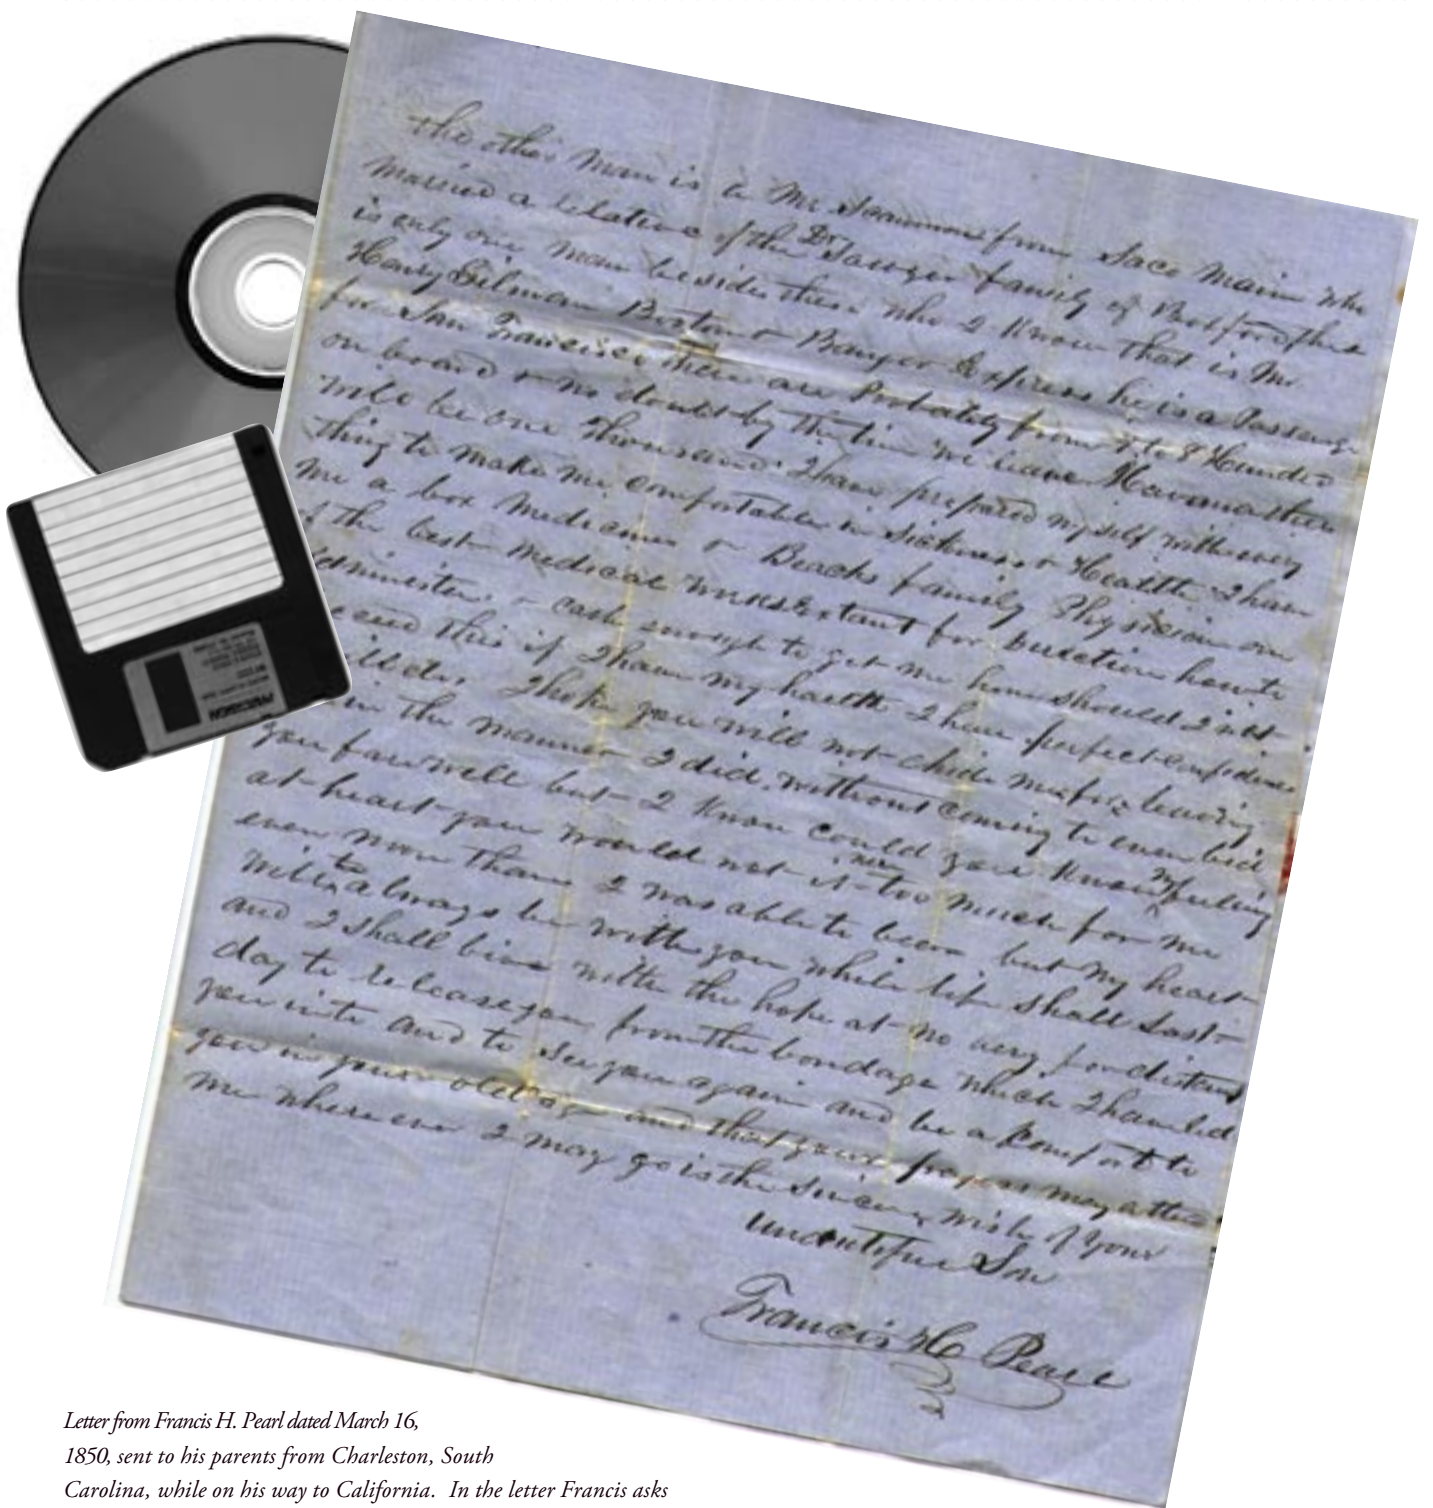 The other man is a Mr Scammon from Saco Maine who
married a relative of the Dr Sawyer family of Bedford there
is only one man besides these who I know that is Mr
Henry Gilman Boston & Bangor Express he is a Passenger
for San Francisco there are Probably from 7 to 8 Hundred
on board & no doubt by the time we leave Havana there
will be one thousand. I have prepared myself with every
thing to make me comfortable in Sickness & Health I have
me a box Medicines & Beachs family Physician one
of the best medical works Extant for direction how to
administer & cash enough to get me home should I not
this if I have my health I have perfect confidence
I hope you will not chide me for leaving
in the manner I did, without coming to even bid
you farewell but I know could you know my feeling
at heart you would not it was too much for me
even more than I was able to bear but my heart
will always be with you while life shall last
and I shall live with the hope at no very far distant
day to release you from the bondage which I have led
you into and to see you again and be a comfort to
you in your old age and that your prayers may attend
me where ever I may go is the sincere wish of your
undutiful Son
Francis H Pearl
PRECISION
Letter from Francis H. Pearl dated March 16,
1850, sent to his parents from Charleston, South
Carolina, while on his way to California. In the letter Francis asks